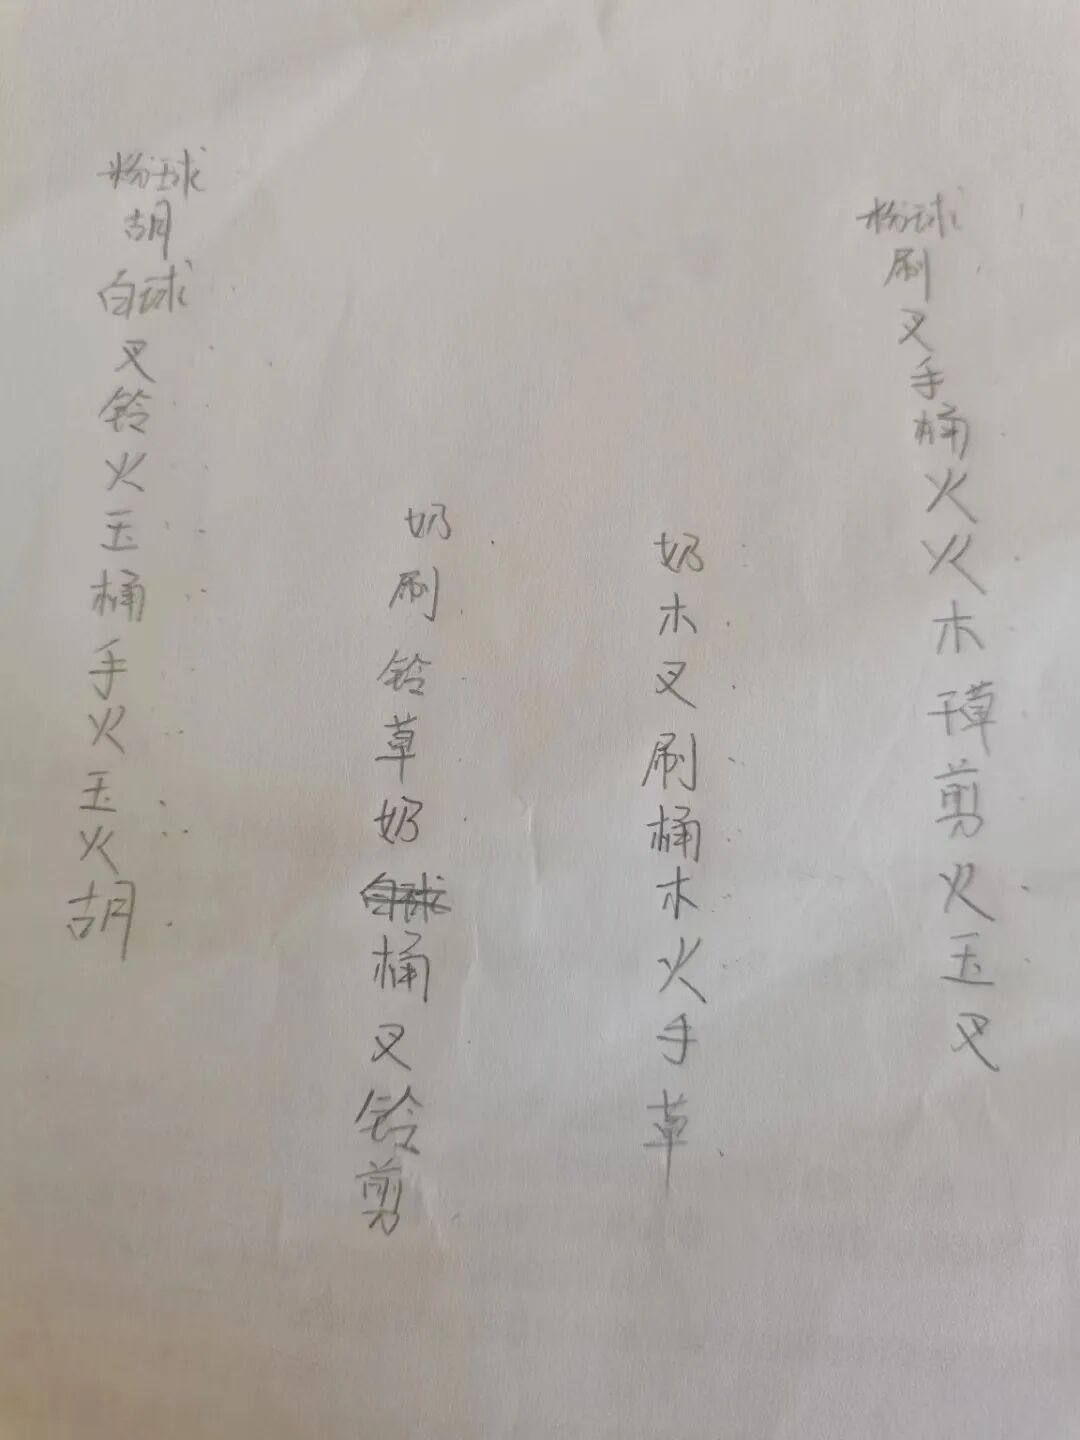 粉球
胡
白球
叉
铃
火
玉
桶
手
火
玉
火
胡
奶
刷
铃
草
奶
白球
桶
叉
铃
剪
奶
木
叉
刷
桶
木
火
手
草
粉球
刷
叉
手
桶
火
火
木
草
剪
火
玉
叉